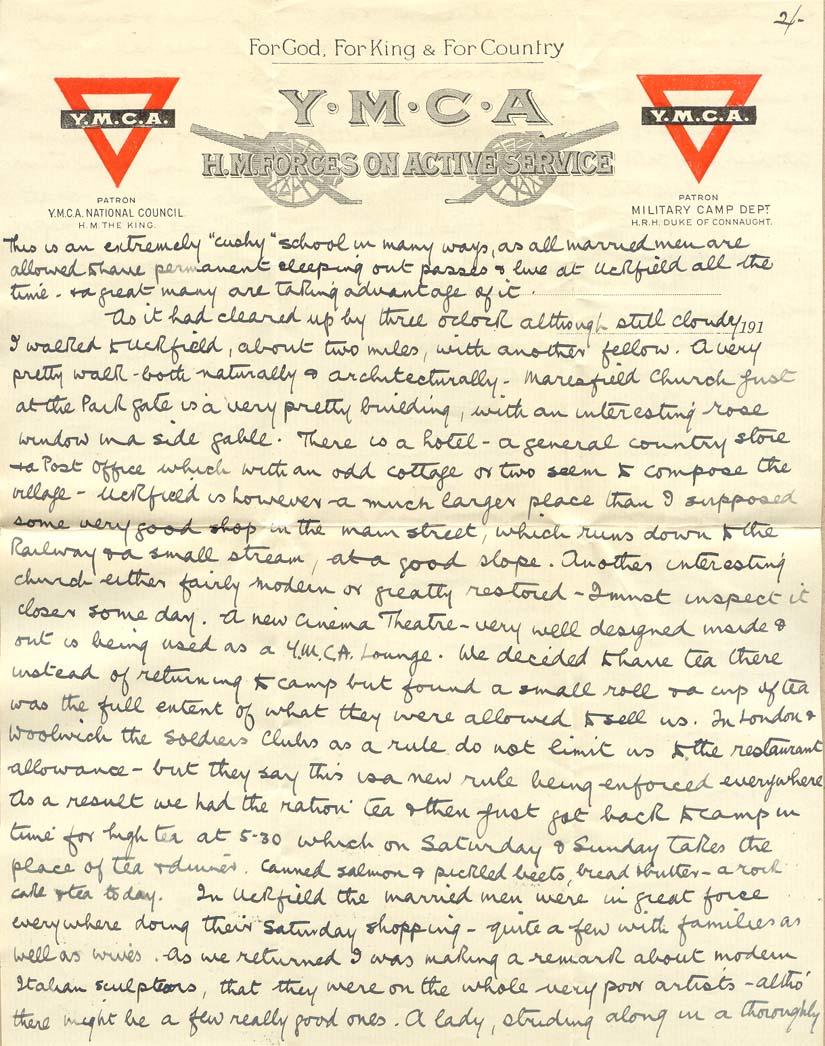 2/-
For God, For King & For Country
Y·M·C·A
H.M. FORCES ON ACTIVE SERVICE
Y.M.C.A.
PATRON
Y.M.C.A. NATIONAL COUNCIL.
H.M. THE KING.
Y.M.C.A.
PATRON
MILITARY CAMP DEPT
H.R.H. DUKE OF CONNAUGHT.
This is an extremely "cushy" school in many ways, as all married men are
allowed to have permanent sleeping out passes & live at Uckfield all the
time - & a great many are taking advantage of it.
As it had cleared up by three oclock although still cloudy, 191
I walked to Uckfield, about two miles, with another fellow. A very
pretty walk - both naturally & architecturally - Maresfield Church just
at the Park gate is a very pretty building, with an interesting rose
window in a side gable. There is a hotel - a general country store
& a Post Office which with an odd cottage or two seem to compose the
village - Uckfield is however a much larger place than I supposed
some very good shop in the main street, which runs down to the
Railway & a small stream, at a good slope. Another interesting
church either fairly modern or greatly restored - I must inspect it
closer some day. A new Cinema Theatre - very well designed inside &
out is being used as a Y.M.C.A. Lounge. We decided to have tea there
instead of returning to camp but found a small roll & a cup of tea
was the full extent of what they were allowed to sell us. In London &
Woolwich the Soldiers Clubs as a rule do not limit us to the restaurant
allowance - but they say this is a new rule being enforced everywhere
As a result we had the ration tea & then just got back to camp in
time for high tea at 5-30 which on Saturday & Sunday takes the
place of tea & dinner. Canned salmon & pickled beets, bread & butter - a rock
cake & tea today. In Uckfield the married men were in great force
everywhere doing their Saturday shopping - quite a few with families as
well as wives. As we returned I was making a remark about modern
Italian sculptors, that they were on the whole very poor artists - altho'
there might be a few really good ones. A lady, striding along in a thoroughly